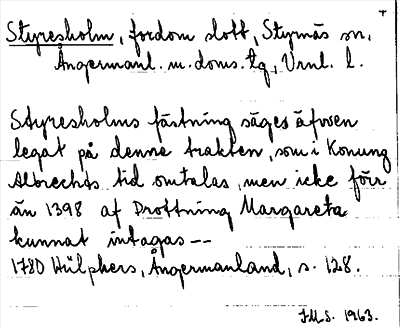 Styresholm, fordom slott, Styrnäs sn,
Ångermanl. m. doms. tg, Vrnl. l.
Styresholms fästning säges äfwen
legat på denne trakten, som i Konung
Albrechts tid omtalas, men icke förr
än 1398 af Drottning Margareta
kunnat intagas --
1780 Hülphers, Ångermanland, s. 128.
J.M.S. 1963.